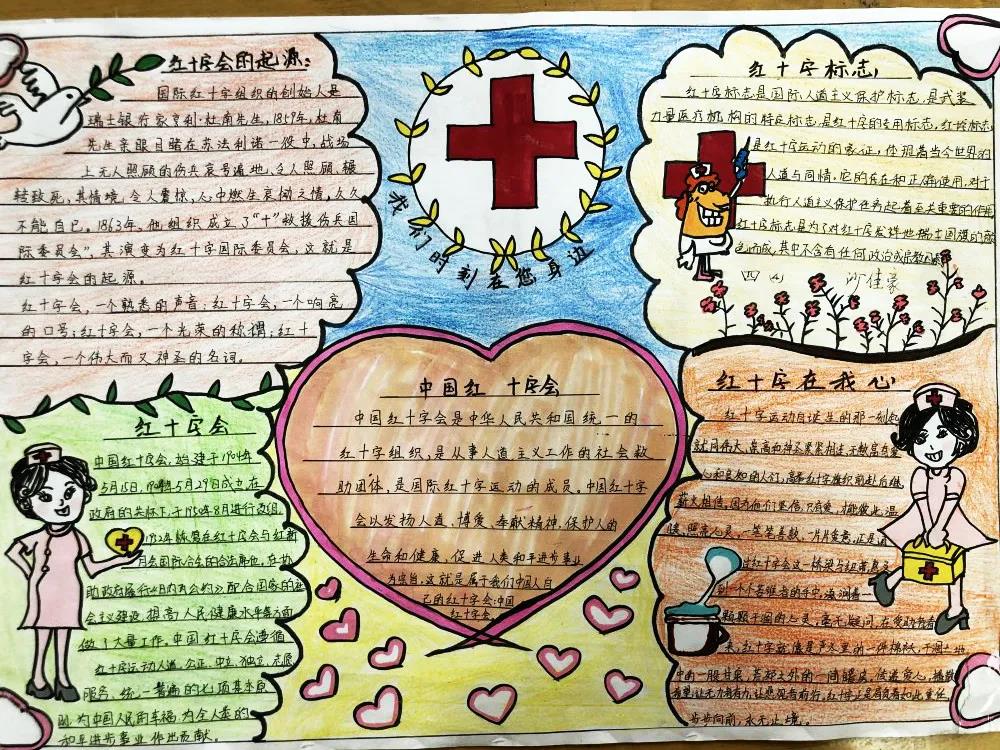 红十字会的起源：
国际红十字组织的创始人是
瑞士银行家亨利·杜南先生，1859年，杜南
先生亲眼目睹在苏法利诺一役中，战场
上无人照顾的伤兵哀号遍地，令人照顾，辗
转致死，其情境，令人震惊，心中燃生哀恸之情，久久
不能自已。1863年，他组织成立了“十”救援伤兵国
际委员会”，其演变为红十字国际委员会，这就是
红十字会的起源。
红十字会，一个熟悉的声音；红十字会，一个响亮
的口号；红十字会，一个光荣的称谓；红十
字会，一个伟大而又神圣的名词。
我们时刻在您身边
红十字标志
红十字标志是国际人道主义保护标志，是武装
力量医疗机构的特定标志，是红十字的专用标志，红十字标志
是红十字运动的象征，体现着当今世界的
人道与同情，它的存在和正确使用，对于
执行人道主义保护任务起着至关重要的作用
红十字标志是为了对红十字发祥地瑞士国旗的颜
色而成，其中不含有任何政治或宗教
四
中国红十字会
中国红十字会是中华人民共和国统一的
红十字组织，是从事人道主义工作的社会救
助团体，是国际红十字运动的成员。中国红十字
会以发扬人道，博爱，奉献精神，保护人的
生命和健康，促进人类和平进步事业
为宗旨，这就是属于我们中国人自
己的红十字会：中国
红十字会。
红十字会
中国红十字会，始建于1904年
5月15日，
政府的共标下，于1950年8月进行改组，
1952年
月会国际合法的合法席位，在协
助政府履行
会主义建设，提高人民健康水平等方面
做了大量工作。中国红十字会遵循
红十字运动人道、公正、中立、独立、志愿
服务、统一、普遍的七项基本原
则，为中国人民的幸福，为全人类的
和平进步事业作出贡献。
红十字在我心
红十字运动自诞生的那一刻起
就同伟大、崇高和神圣紧紧相连，无数富有爱
人和良知的人们，高举红十字旗帜前赴后继，
薪火相传，因为他们坚信，只有爱，才能彼此温
暖，照亮人灵，一笔笔善款，一片片爱意，正是通
过红十字会这一桥梁与纽带
到一个个苦难者的手中，滋润着一
颗颗干涸的心灵，毫无疑问，在受助者看
来，红十字就像是严冬里的一件棉袄，干涸土地
中的一股甘泉，
步步向前，永无止境。